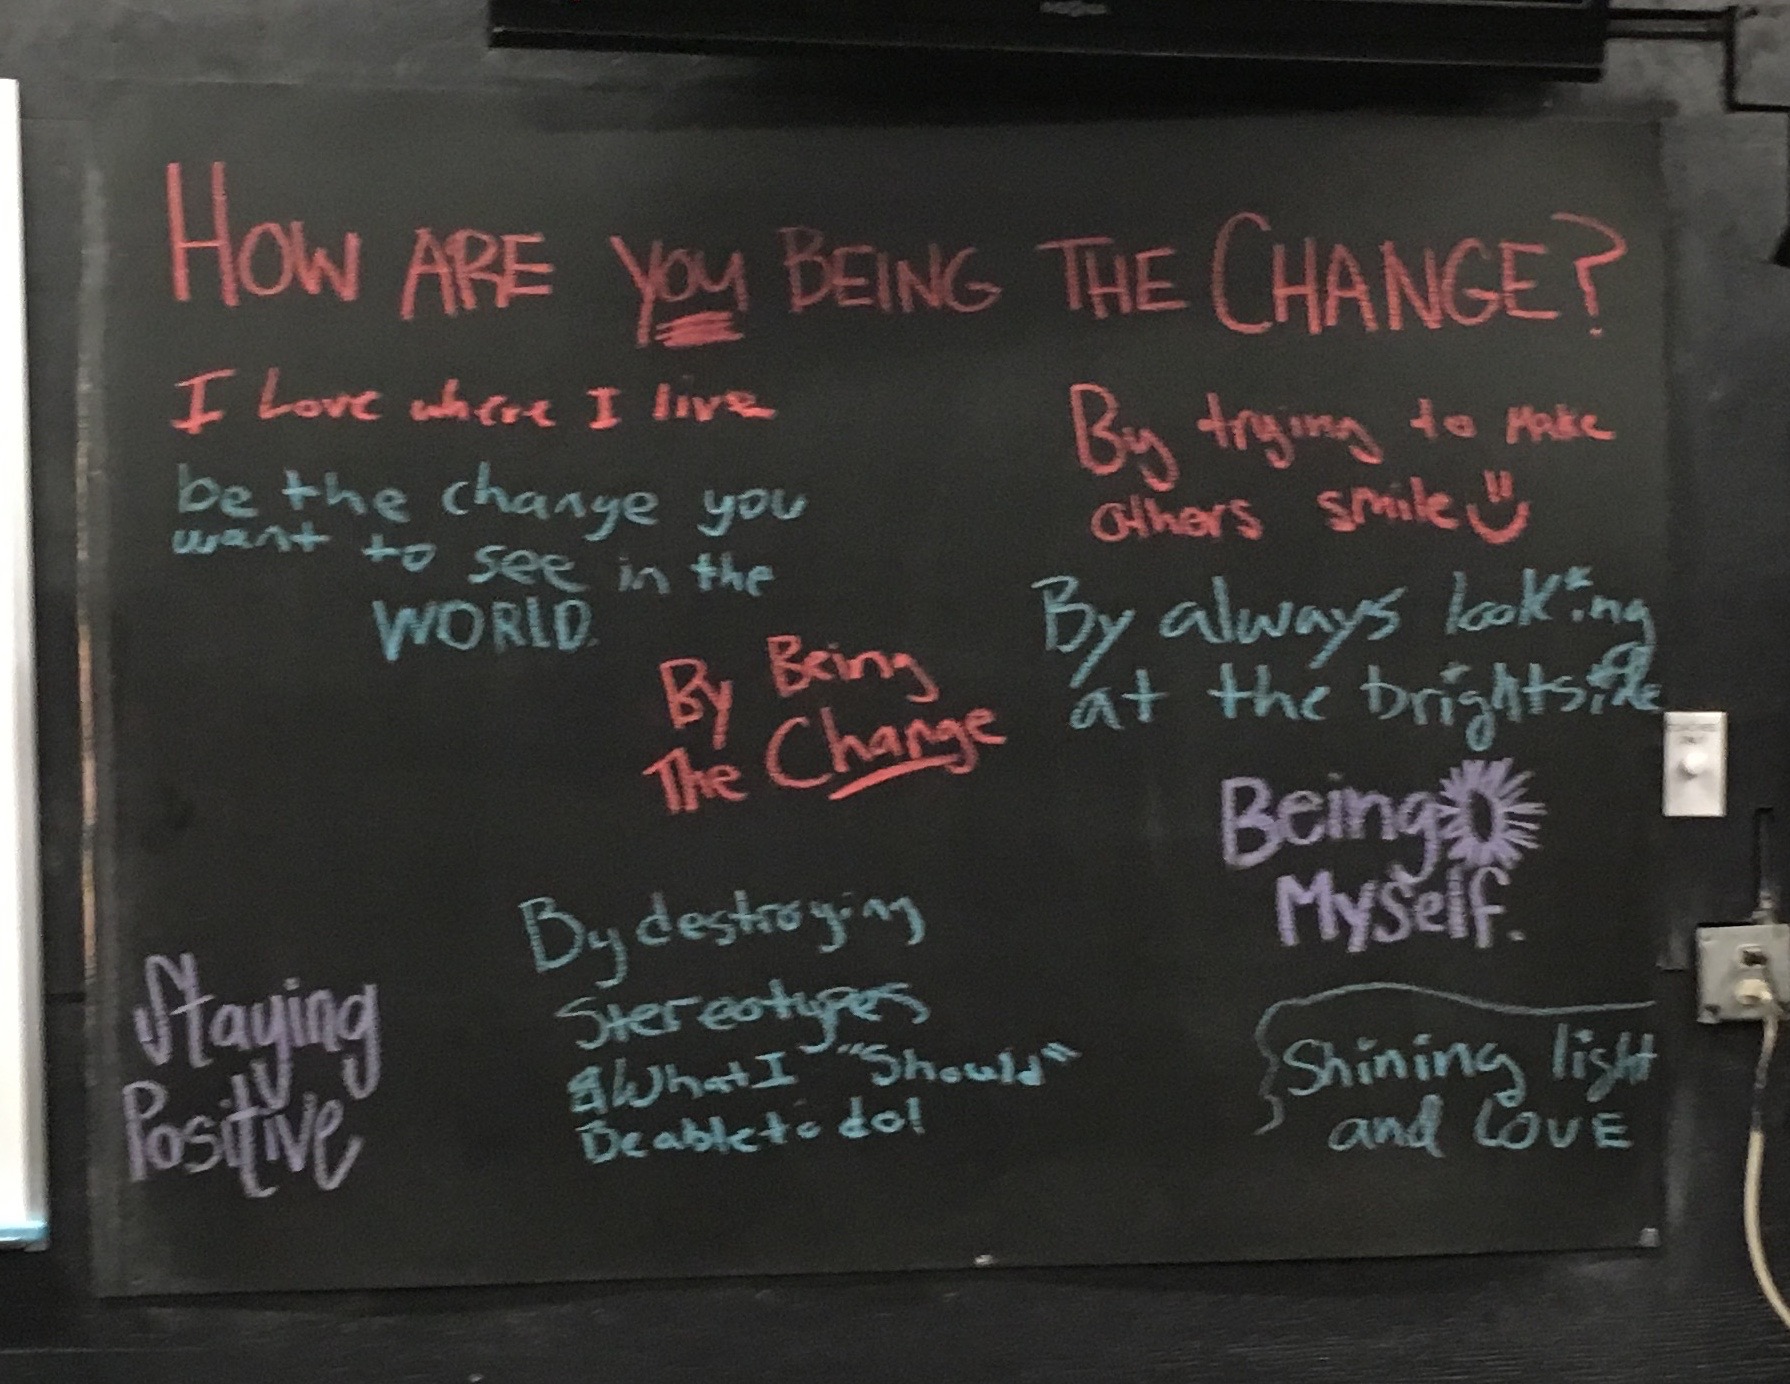 HOW ARE YOU BEING THE CHANGE?
I Love where I live
be the change you
want to see in the
WORLD.
By trying to MAKE
others smile
By always looking
at the brightside
By Being
The Change
Being
Myself.
By destroying
Stereotypes
What I "Should"
Be able to do!
Staying
Positive
Shining light
and LOVE